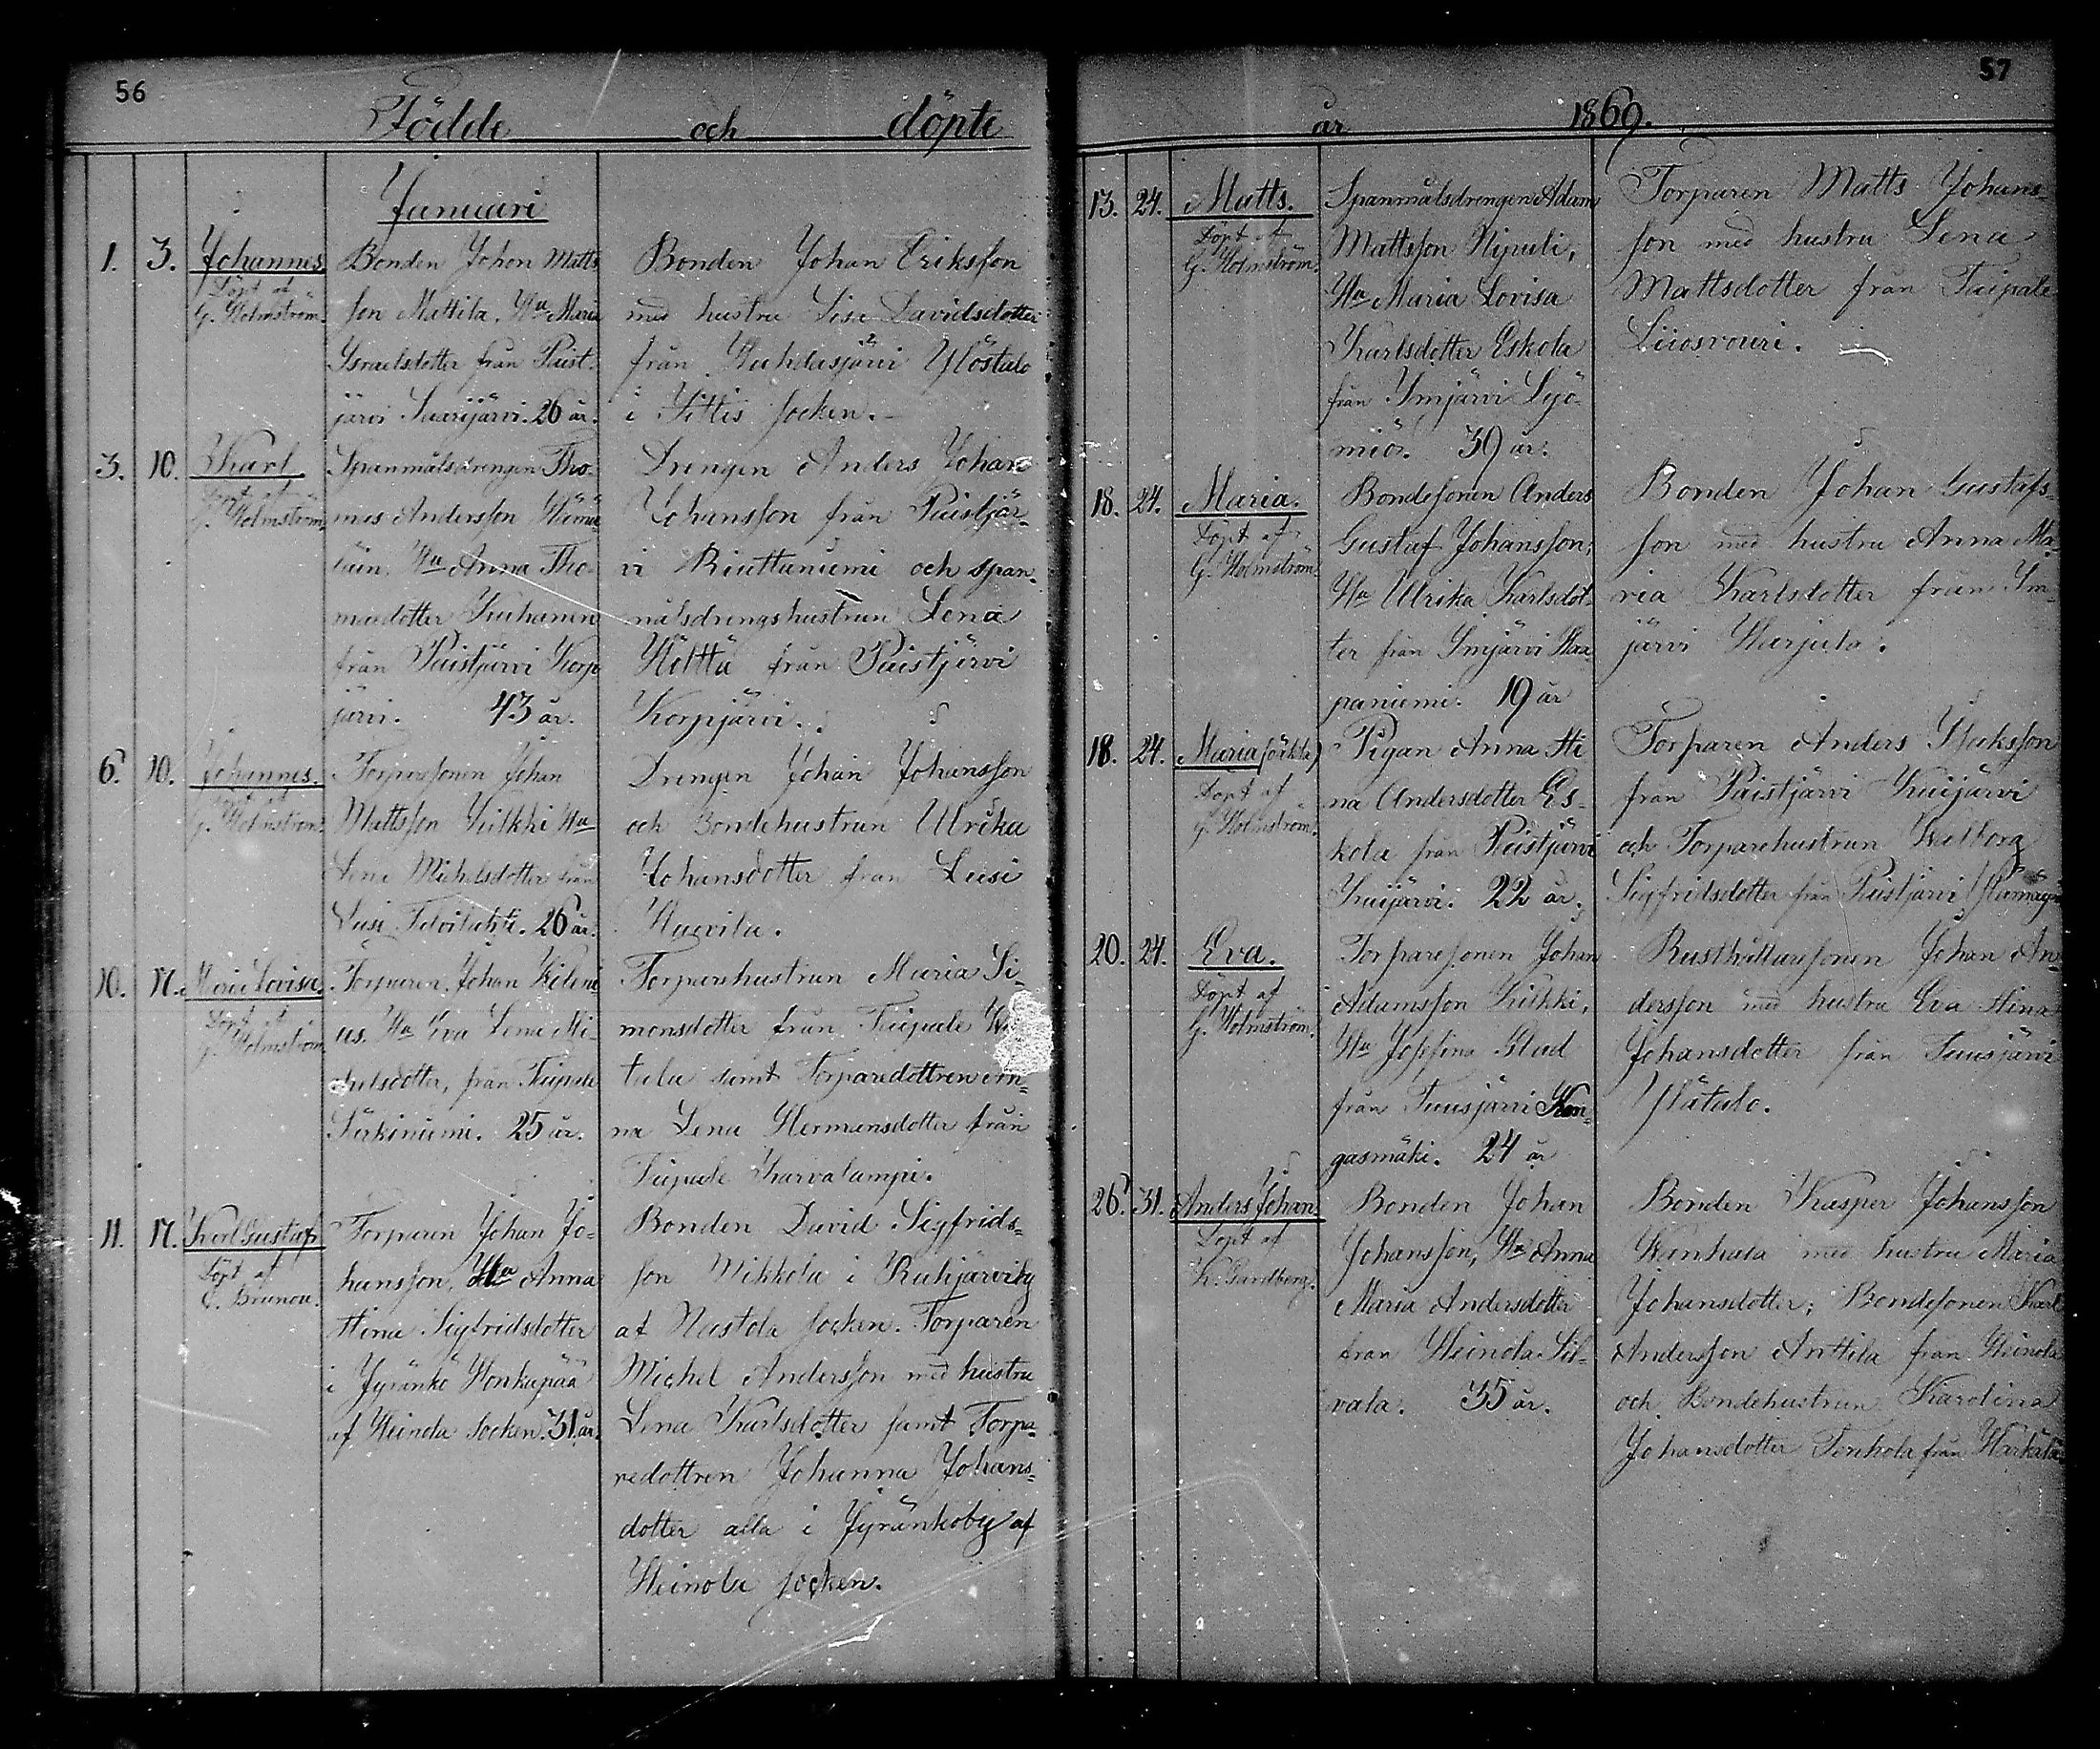 56
Födde och döpte
Januari
1. 3. Johannes
Döpt af
G. Holmström.
Bonden Johan Matts
son Mattila, Hu Maria
Israelsdotter från Paist-
järvi Suurijärvi. 26 år.
Bonden Johan Eriksson
med hustru Lisa Davidsdotter
från Wuhdasjärvi Ylöstalo
i Iittis socken.
3. 10. Karl
Döpt af
G. Holmström
Spanmålsdrengen Tho-
mas Andersson Hämä
läin. Hu Anna Tho-
masdotter Kuhanen
från Paistjärvi Korp
järvi. 43 år.
Drengen Anders Johan
Johansson från Paistjär-
vi Riuttaniemi och span-
målsdrengshustrun Lena
Höltta från Paistjärvi
Korpjärvi.
6. 10. Johannes.
Döpt af
G. Holmström
Torparesonen Johan
Mattsson Kilkki Hu
Lena Michelsdotter från
Lusi 26 år.
Drengen Johan Johansson
och Bondehustrun Ulrika
Johansdotter från Lusi
10. 17. Maria Lovisa
Döpt af
G. Holmström
Torparen Johan Heleni
us. Hu Eva Lena Mi-
chelsdotter, från Taipale
Särkiniemi. 25 år.
Torparehustrun Maria Si-
monsdotter från Taipale
samt Torparedottren An-
na Lena Hermansdotter från
Taipale Karvalampi.
11. 17. Karl Gustaf
Döpt af
C. Brunou.
Torparen Johan Jo-
hansson, Hu Anna
Stina Sigfridsdotter
i Jyränkö Honkapää
af Heinola Socken. 31 år.
Bonden David Sigfrids-
son Mikkola i Ruhjärviby
af Nastola socken. Torparen
Michel Andersson med hustru
Lena Karlsdotter samt Torpa-
redottren Johanna Johans-
dotter alla i Jyränköby af
Heinola socken.
57
år 1869.
13. 24. Matts.
Döpt af
G. Holmström.
Spanmålsdrengen Adam
Mattsson Nipuli,
Hu Maria Lovisa
Karlsdotter Eskola
från Imjärvi Syö-
miö. 39 år.
Torparen Matts Johans-
son med hustru Lena
Mattsdotter från Taipale
18. 24. Maria.
Döpt af
G. Holmström.
Bondesonen Anders
Gustaf Johansson,
Hu Ulrika Karlsdot-
ter från Imjärvi Haa-
paniemi. 19 år
Bonden Johan Gustafs-
son med hustru Anna Ma-
ria Karlsdotter från Im-
järvi Harjula.
18. 24. Maria (oäkta)
Döpt af
G. Holmström.
Pigan Anna Sti
na Andersdotter Es-
kola från Paistjärvi
Kuijärvi. 22 år.
Torparen Anders Isaksson
från Paistjärvi Kuijärvi
och Torparehustrun Walborg
Sigfridsdotter från Paistjärvi
20. 24. Eva.
Döpt af
G. Holmström.
Torparesonen Johan
Adamsson Kilkki,
Hu Josefina Glad
från Tuusjärvi Kan-
gasmäki. 24 år
Rusthållaresonen Johan An-
dersson med hustru Eva Stina
Johansdotter från Tuusjärvi
Ylätalo.
26. 31. Anders Johan
Döpt af
K. Sandberg.
Bonden Johan
Johansson, Hu Anna
Maria Andersdotter
från Heinola Sil-
vala. 35 år.
Bonden Kasper Johansson
Wanhala med hustru Maria
Johansdotter; Bondesonen Karl
Andersson Anttila från Heinola
och Bondehustrun Karolina
Johansdotter Tenhola från Härkälä